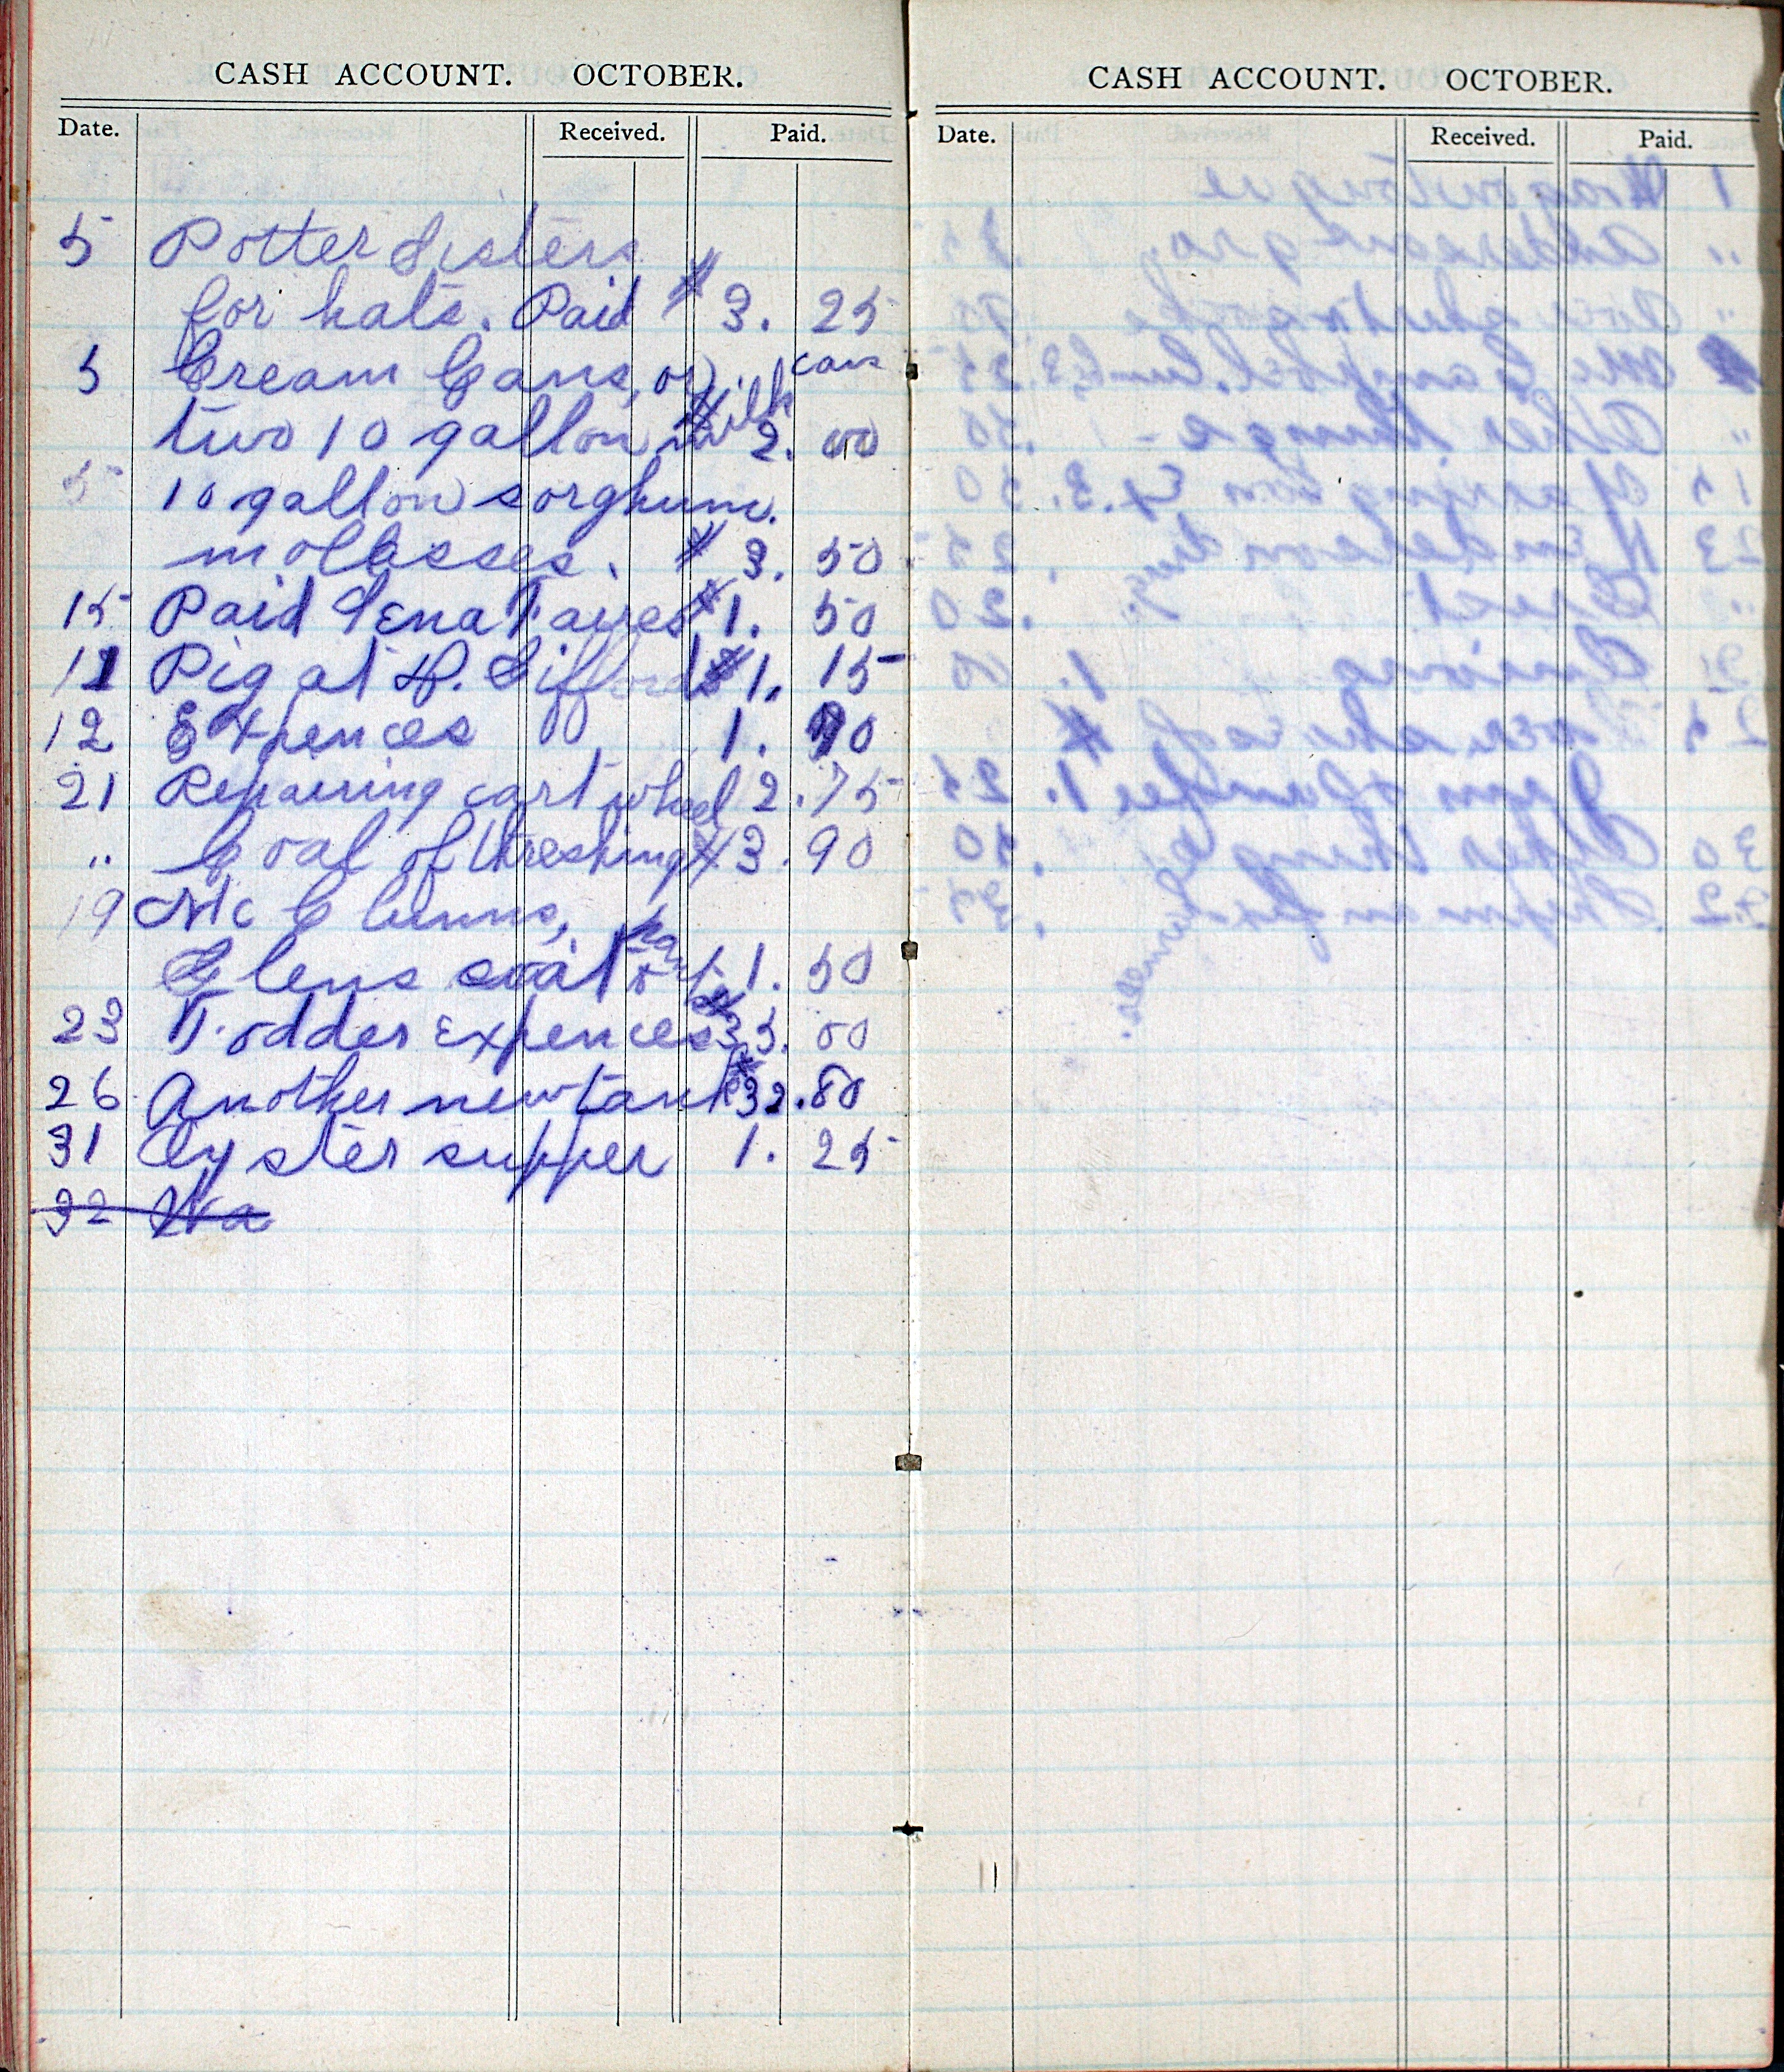 CASH ACCOUNT. OCTOBER.
Date. Received. Paid.
5 Potter Sisters
for hats. Paid $ 3. 25
5 Cream Cans, or milk cans
two 10 gallon 2. 00
5 10 gallon sorghum.
molasses. $ 3. 50
15 Paid $1. 50
11 Pig at Giffords $1. 15
12 Expences 1. 90
21 Repairing cart wheel 2. 75
" Coal of threshing $3. 90
19 Mc Clunns,
Glens coat & pants 1. 50
23 Fodder Expences $35. 00
26 Another new tank $32. 80
31 Oyster supper 1. 25
32 Wa
CASH ACCOUNT. OCTOBER.
Date. Received. Paid.